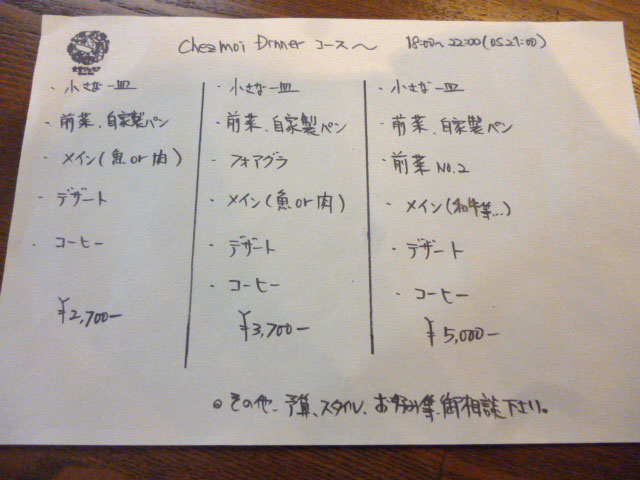 Chezmoi Dinner コース〜 18:00〜22:00(OS21:00)
・小さな一皿
・前菜、自家製パン
・メイン(魚or肉)
・デザート
・コーヒー
¥2,700-
・小さな一皿
・前菜、自家製パン
・フォアグラ
・メイン(魚or肉)
・デザート
・コーヒー
¥3,700-
・小さな一皿
・前菜、自家製パン
・前菜 NO.2
・メイン(和牛等...)
・デザート
・コーヒー
¥5,000-
○その他、予算、スタイル、お好み等、御相談下さい。